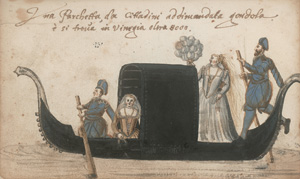 Una Barchetta da Cittadini addimandata gondola
è si trova in Vinegia circa 8000.